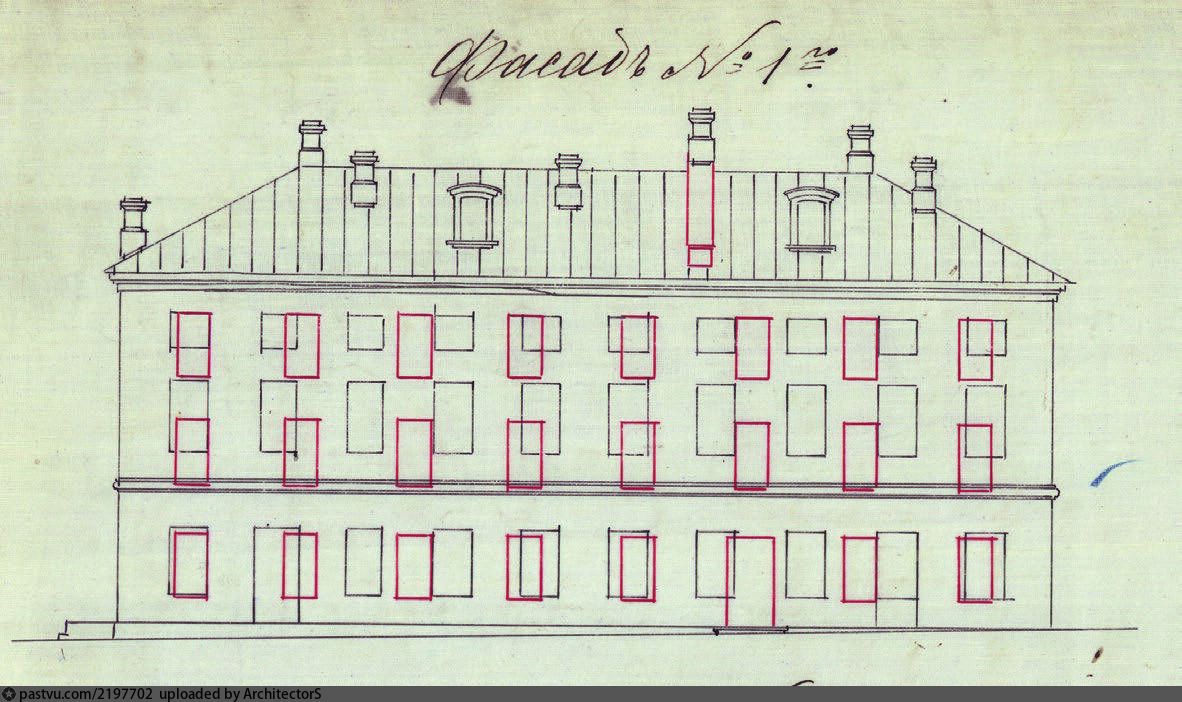 Фасадъ № 1го
pastvu.com/2197702 uploaded by ArchitectorS